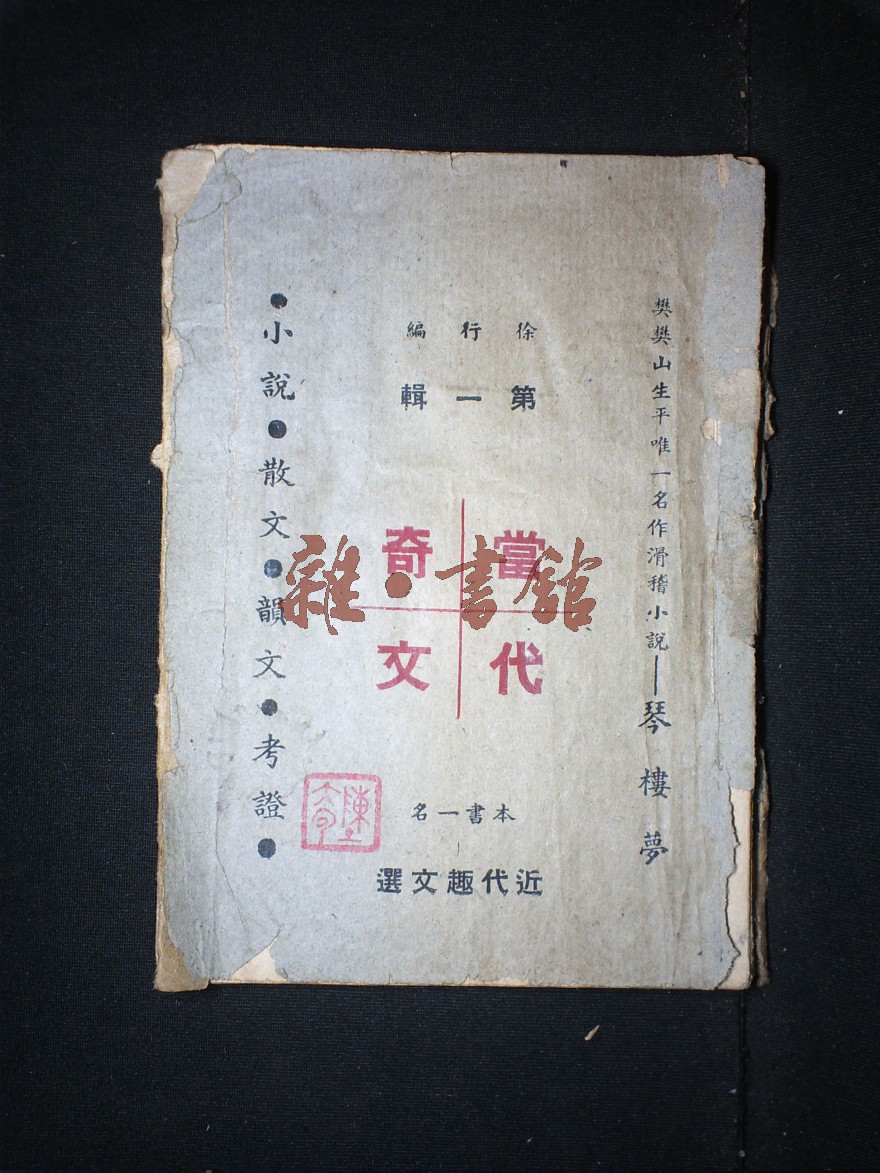 樊樊山生平唯一名作滑稽小說—琴樓夢
徐行編
第一輯
當代
奇文
本書一名
近代趣文選
●小說●散文●韻文●考證●
雜·書館